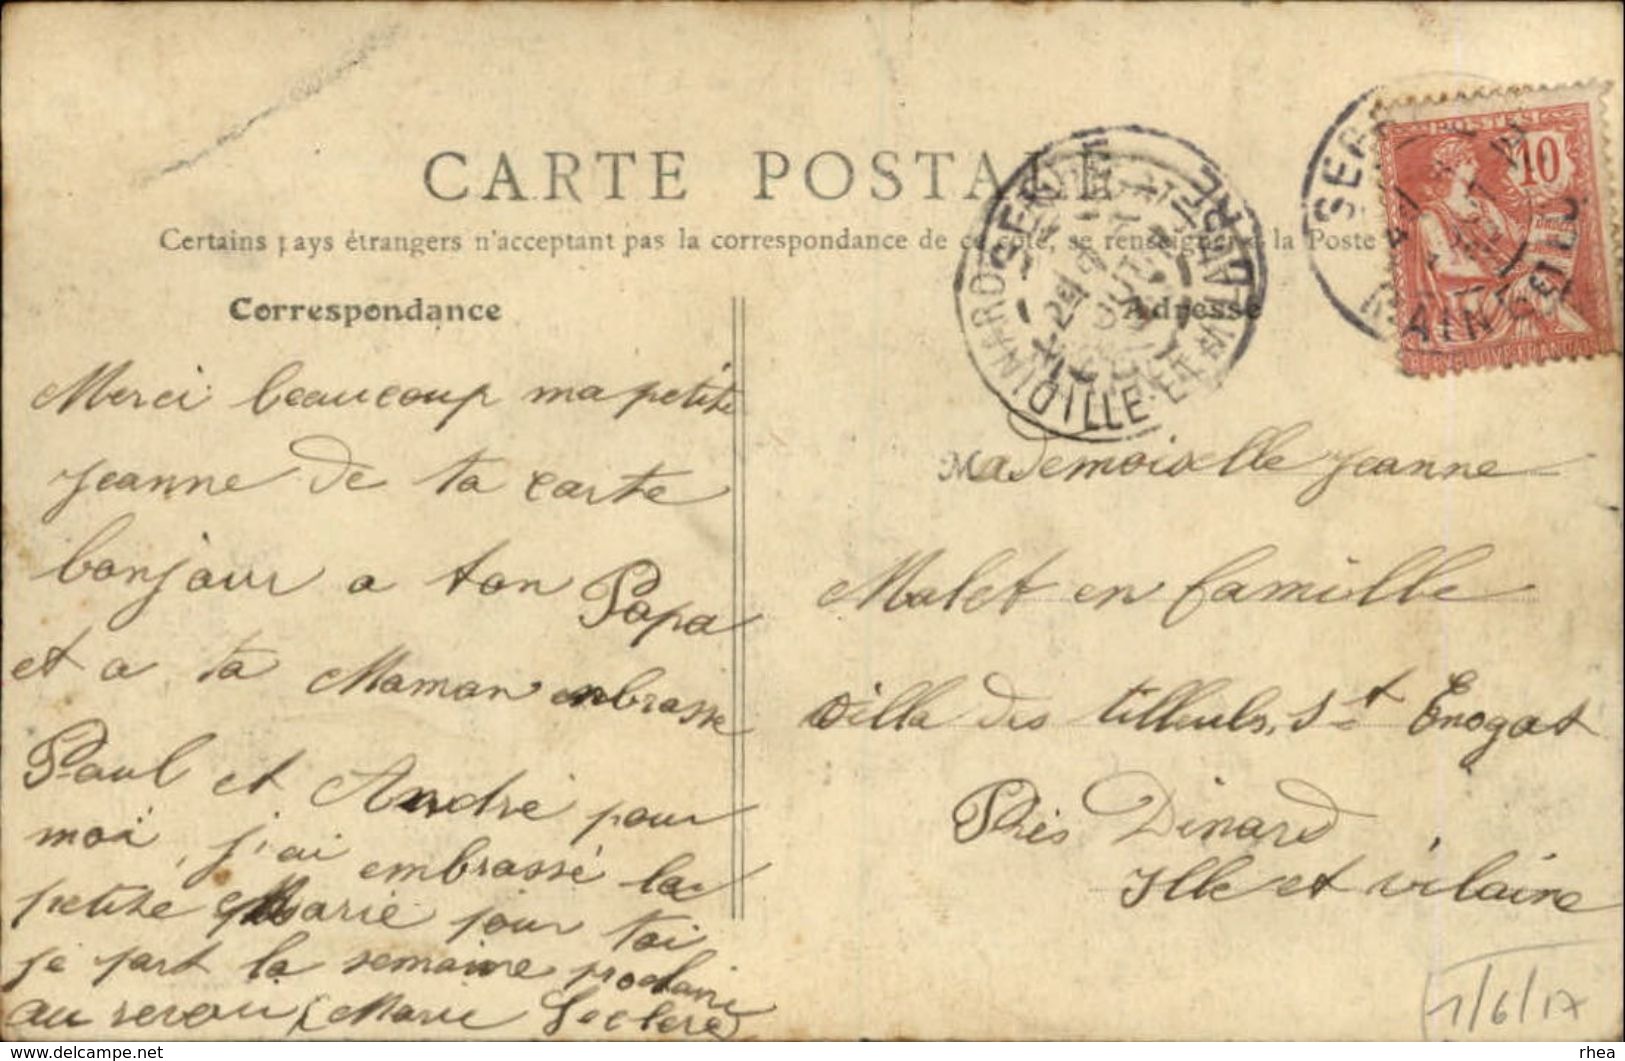 CARTE POSTALE
Certains pays étrangers n'acceptant pas la correspondance de ce côté, se renseigner à la Poste
Correspondance
Merci beaucoup ma petite
Jeanne de ta carte
bonjour a ton Papa
et a ta Maman embrasse
Paul et André pour
moi, j'ai embrassé la
petite Marie pour toi
je part la semaine prochaine
au revoir, Marie Leclere
Adresse
Mademoiselle Jeanne
Malet en famille
villa des tilleuls, St Enogat
Près Dinard
Ille et vilaine
POSTES
10
DINARD ILLE-ET-V
1/6/17
www.delcampe.net
rhea